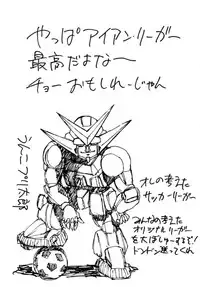 やっぱアイアンリーガー
最高だよな～
チョーおもしれーじゃん
オレの考えた
サッカーリーガー
みんなの考えた
オリジナルリーガー
を大ぼしゅーするぞ!
ドンドン送ってくれ